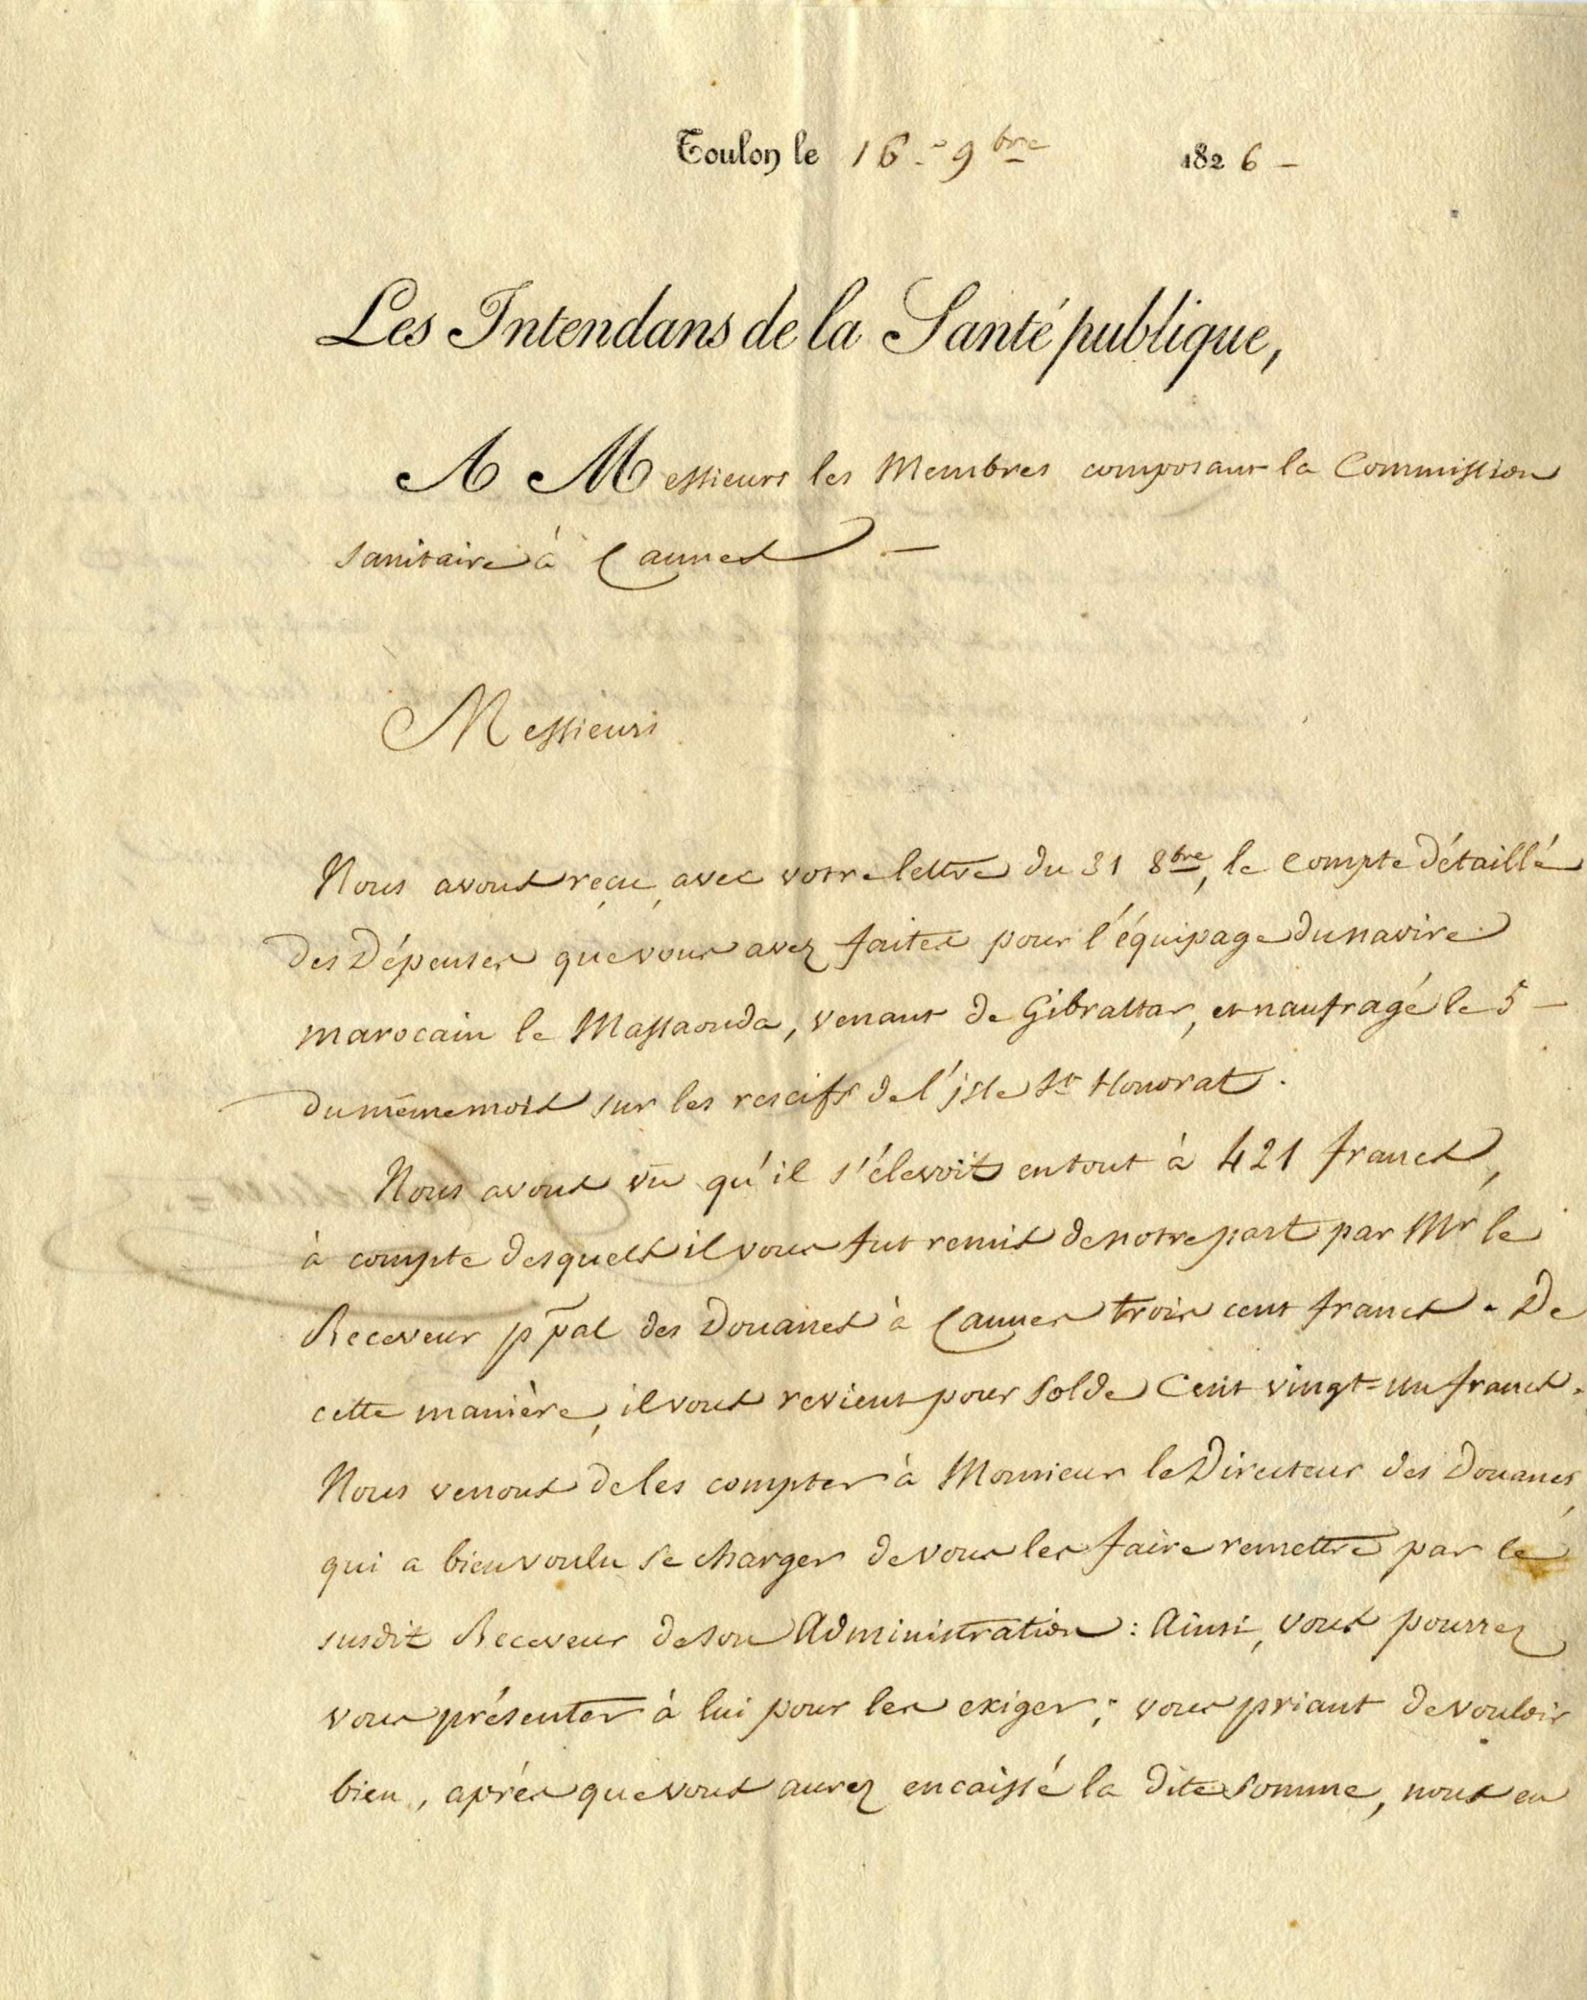 Toulon le 16 - 9bre 1826 -
Les Intendans de la Santé publique,
A Messieurs les Membres composant la Commission
sanitaire à Cannes -
Messieurs
Nous avons reçu, avec votre lettre du 31 8bre, le compte détaillé
des Dépenses que vous avez faites pour l'équipage du navire
marocain le Massaouda, venant de Gibraltar, et naufragé le 5 -
du même mois sur les rescifs de l'isle St Honorat.
Nous avons vu qu'il s'élevoit en tout à 421 francs,
à compte desquels il vous fut remis de notre part par Mr le
Receveur ppal des Douanes à Cannes trois cent francs. De
cette manière, il vous revient pour solde Cent vingt=un francs.
Nous venons de les compter à Monsieur le Directeur des Douanes,
qui a bien voulu se charger de vous les faire remettre par le
susdit Receveur de son Administration : Ainsi, vous pourrez
vous présenter à lui pour les exiger; vous priant de vouloir
bien, après que vous aurez encaissé la dite somme, nous en